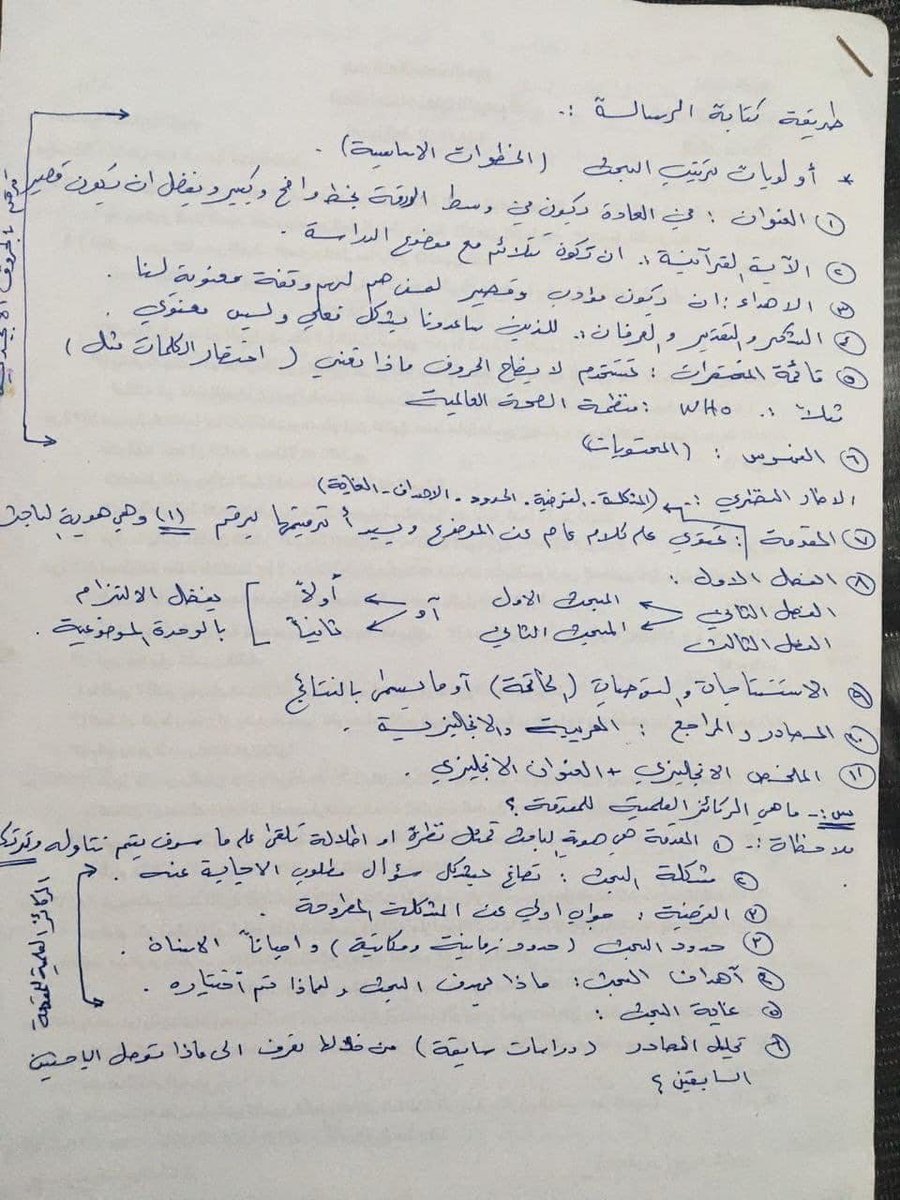 طريقة كتابة الرسالة :.
* أولويات ترتيب البحث (الخطوات الاساسية) .
① العنوان : في العادة يكون في وسط الورقة بخط واضح وكبير ويفضل ان يكون قصير
② الآية القرآنية :. ان تكون تتلائم مع موضوع الدراسة .
③ الاهداء : ان يكون مؤدب وقصير لمن هم لهم وقفة معنوية لنا .
④ الشكر والتقدير والعرفان :. للذين ساعدونا بشكل فعلي وليس معنوي .
⑤ قائمة المختصرات : تستخدم لايضاح الحروف ماذا تعني ( اختصار الكلمات مثل )
مثلاً :. WHO : منظمة الصحة العالمية
⑥ الفهرس : (المحتويات)
الاطار النظري :. (المشكلة . الفرضية . الحدود . الاهداف - الغاية)
⑦ المقدمة : تحتوي على كلام عام عن الموضوع ويبدأ ترقيمها برقم (١) وهي هوية الباحث
⑧ الفصل الاول :
الفصل الثاني المبحث الاول أو أولاً يفضل الالتزام
الفصل الثالث المبحث الثاني ثانياً بالوحدة الموضوعية .
⑨ الاستنتاجات والتوصيات (الخاتمة) أو ما يسمى بالنتائج
⑩ المصادر والمراجع : العربية والانجليزية .
⑪ الملخص الانجليزي + العنوان الانجليزي
س :- ما هي الركائز العلمية للمقدمة ؟
ملاحظة :- ① المقدمة هي هوية الباحث تمثل نظرة او اطلالة تلقى على ما سوف يتم تناوله
مشكلة البحث : تصاغ بشكل سؤال مطلوب الاجابة عنه .
② الفرضية : جواب اولي عن المشكلة المطروحة .
③ حدود البحث (حدود زمانية ومكانية) واحياناً
④ أهداف البحث : ماذا يهدف البحث ولماذا تم اختياره .
⑤ غاية البحث :
⑥ تحليل المصادر (دراسات سابقة) من خلالها نعرف الى ماذا توصل الباحثين
السابقين ؟
الركائز العلمية للمقدمة